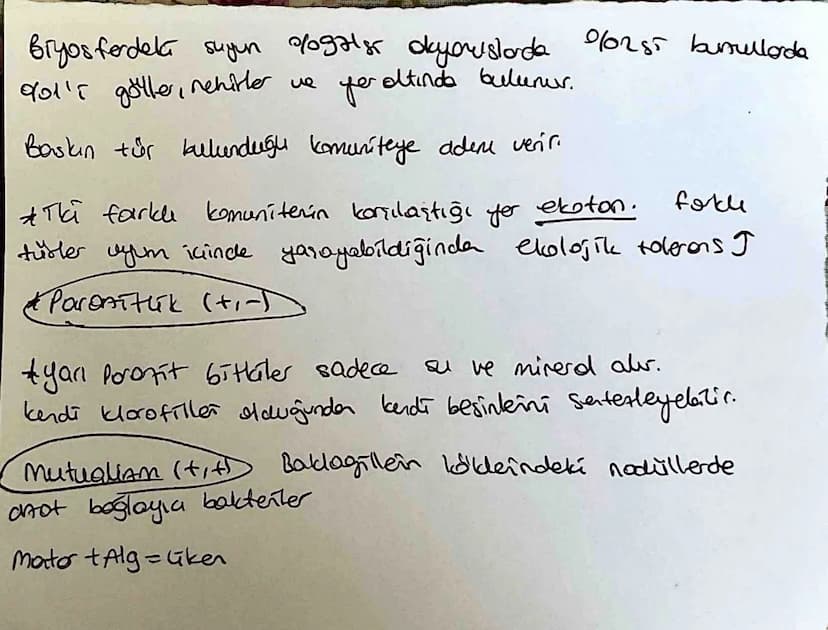 Biyosferdeki suyun %97si okyonuslarda %02si buzullarda
%01'i göller, nehirler ve yer altında bulunur.
Baskın tür bulunduğu komuniteye adını verir.
*İki farklı komunitenin karşılaştığı yer ekoton. farklı
türler uyum içinde yaşayabildiğinden ekolojik tolerans ↑
*Parazitlik (+,-)
*yarı Parazit bitkiler sadece su ve mineral alır.
kendi klorofilleri olduğundan kendi besinlerini sentezleyebilir.
Mutualizm (+,+) Baklagillerin köklerindeki nodüllerde
azot bağlayıcı bakteriler
Mantar + Alg = Liken